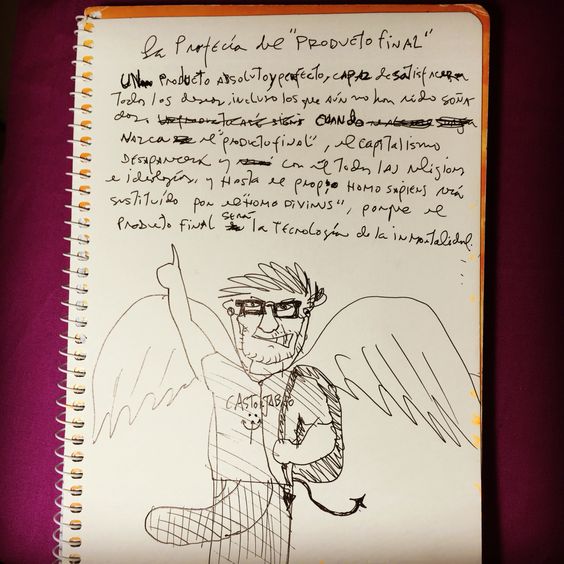 La Profecía del "PRODUCTO FINAL"
UN PRODUCTO ABSOLUTO y PERFECTO, CAPAZ de SATISFACER
Todos los deseos, incluso los que aún no han sido SOÑA
dos. CUANDO
NAZCA el "PRODUCTO FINAL", el CAPITALISMO
DESAPARECERÁ y con él Todas LAS religiones
e ideologías, y HASTA el propio HOMO SAPIENS será
sustituido por el "HOMO DIVINUS", porque el
PRODUCTO FINAL SERÁ la TECNOLOGÍA de la INMORTALIDAD.